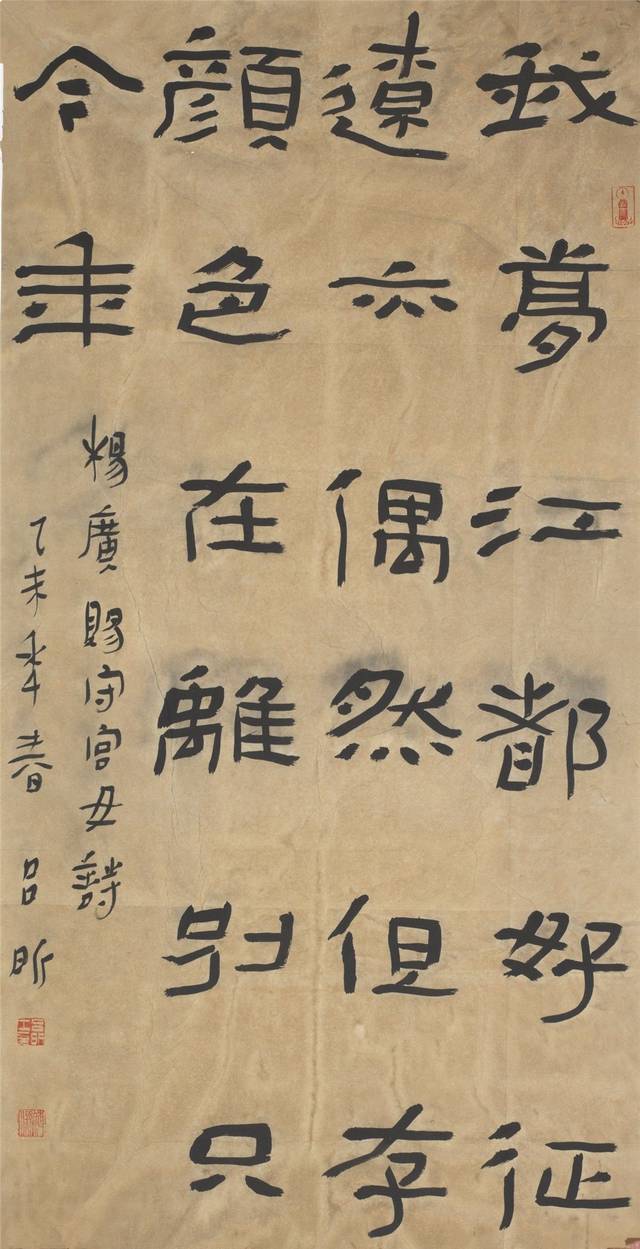 我夢江都好征
遼亦偶然但存
顏色在離別只
今年
楊廣賜守宮女詩
乙未年春呂昕